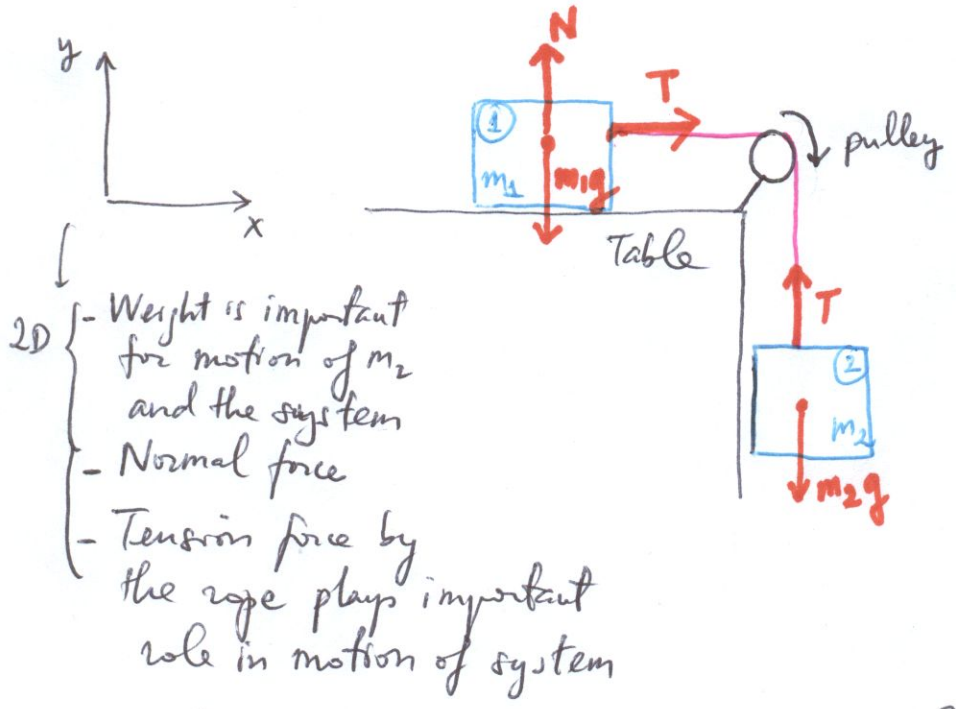 y
x
N
T
1
m1
m1g
pulley
Table
T
2
m2
m2g
2D
- Weight is important
for motion of m2
and the system
- Normal force
- Tension force by
the rope plays important
role in motion of system